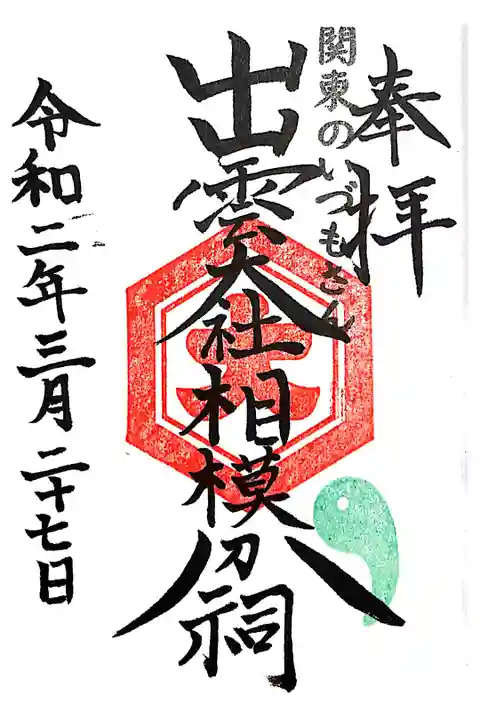 奉拝
関東のいづもさん
出雲大社相模分祠
令和二年三月二十七日